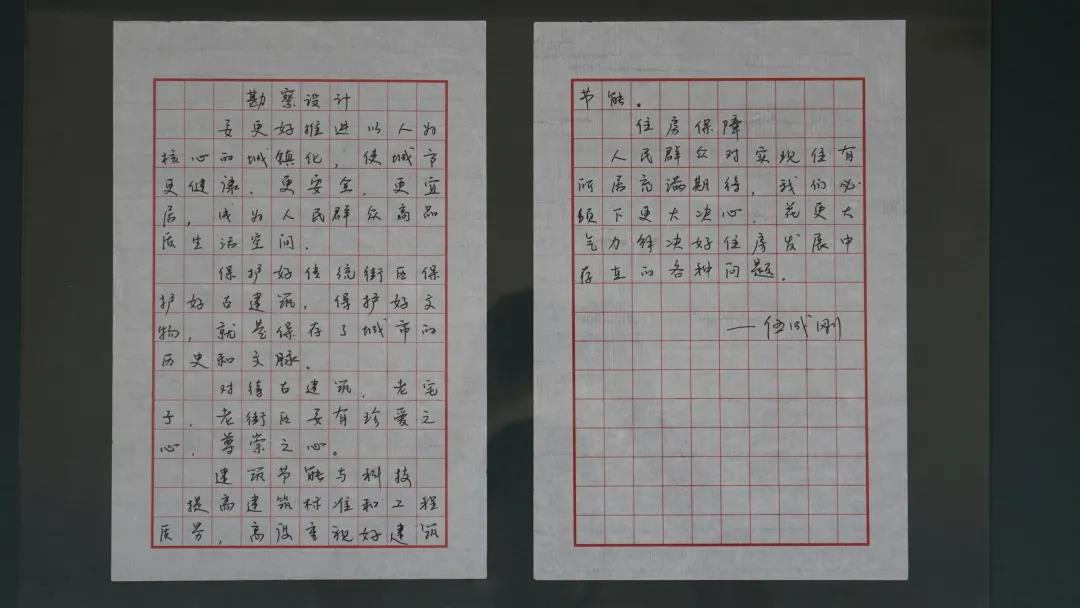 勘察设计
要更好推进以人为
核心的城镇化，使城市
更健康、更安全、更宜
居，成为人民群众高品
质生活空间．
保护好传统街区保
护好古建筑，保护好文
物，就是保存了城市的
历史和文脉。
对待古建筑、老宅
子、老街区要有珍爱之
心、尊崇之心。
建筑节能与科技
提高建筑标准和工程
质量，高度重视好建筑
节能。
住房保障
人民群众对实现住有
所居高满期待，我们必
须下更大决心、花更大
气力解决好住房发展中
存在的各种问题．
——伍成刚